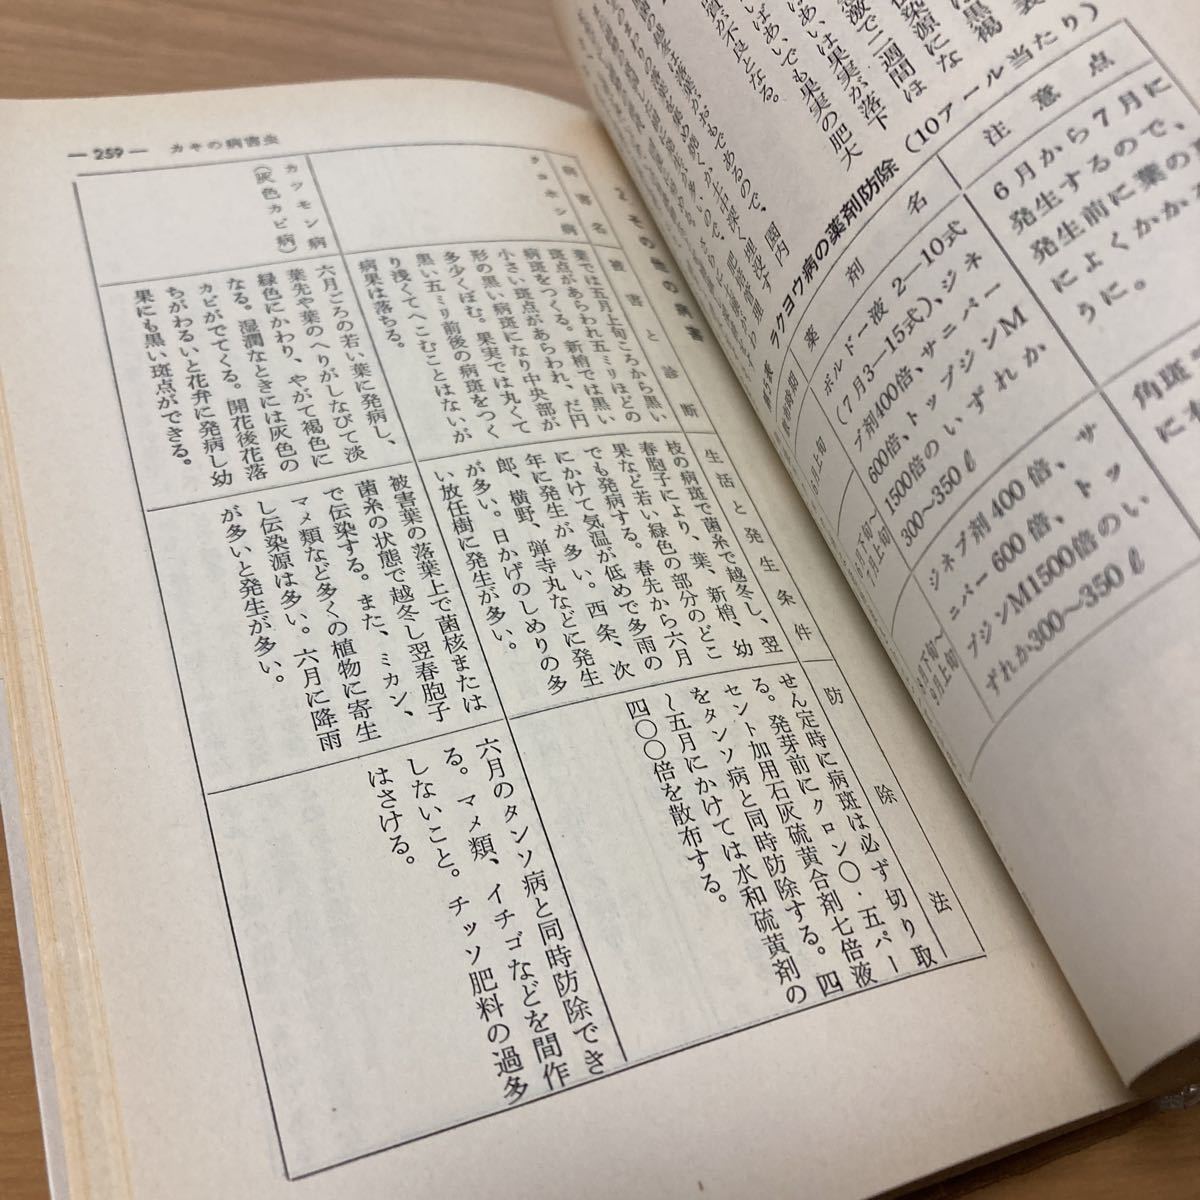 ― 259 ―　カキの病害虫
2 その他の病害
病害名
被害と診断
生活と発生条件
防除法
チョホシ病
葉では五月上旬ころから黒い
斑点があらわれ五ミリほどの
病斑をつくる。新梢では黒い
小さい斑点があらわれ、だ円
形の黒い病斑になり中央部が
多少くぼむ。果実では丸くて
黒い五ミリ前後の病斑をつく
り浅くてへこむことはないが
病果は落ちる。
枝の病斑で菌糸で越冬し、翌
春胞子により、葉、新梢、幼
果など若い緑色の部分のどこ
でも発病する。春先から六月
にかけて気温が低めで多雨の
年に発生が多い。西条、次
郎、横野、弾寺丸などに発生
が多い。日かげのしめりの多
い放任樹に発生が多い。
せん定時に病斑は必ず切り取
る。発芽前にクロン〇・五パー
セント加用石灰硫黄合剤七倍液
をタンソ病と同時防除する。四
～五月にかけては水和硫黄剤の
四〇〇倍を散布する。
カッモン病
(灰色カビ病)
六月ころの若い葉に発病し、
葉先や葉のへりがしなびて淡
緑色にかわり、やがて褐色に
なる。湿潤なときには灰色の
カビがでてくる。開花後花落
ちがわるいと花弁に発病し幼
果にも黒い斑点ができる。
被害葉の落葉上で菌核または
菌糸の状態で越冬し翌春胞子
で伝染する。また、ミカン、
マメ類など多くの植物に寄生
し伝染源は多い。六月に降雨
が多いと発生が多い。
六月のタンソ病と同時防除でき
る。マメ類、イチゴなどを間作
しないこと。チッソ肥料の過多
はさける。
ラクヨウ病の薬剤防除（10アール当たり）
薬剤名
注意点
6月上旬
ボルドー液 2―10式
(7月3―15式)、ジネ
ブ剤400倍、サニパー
600倍、トップジンM
1500倍のいずれか
300～350ℓ
6月から7月に
発生するので、
発生前に葉の裏
によくかかる
うに。
6月下旬～
7月上旬
ジネブ剤400倍、サ
ニパー600倍、トッ
プジンM1500倍のい
ずれか300～350ℓ
角斑
に
8月下旬～
9月上旬
染源にな
激で二週間は
はあいは果実が落下
ばあいでも果実の肥大
質が不良となる。